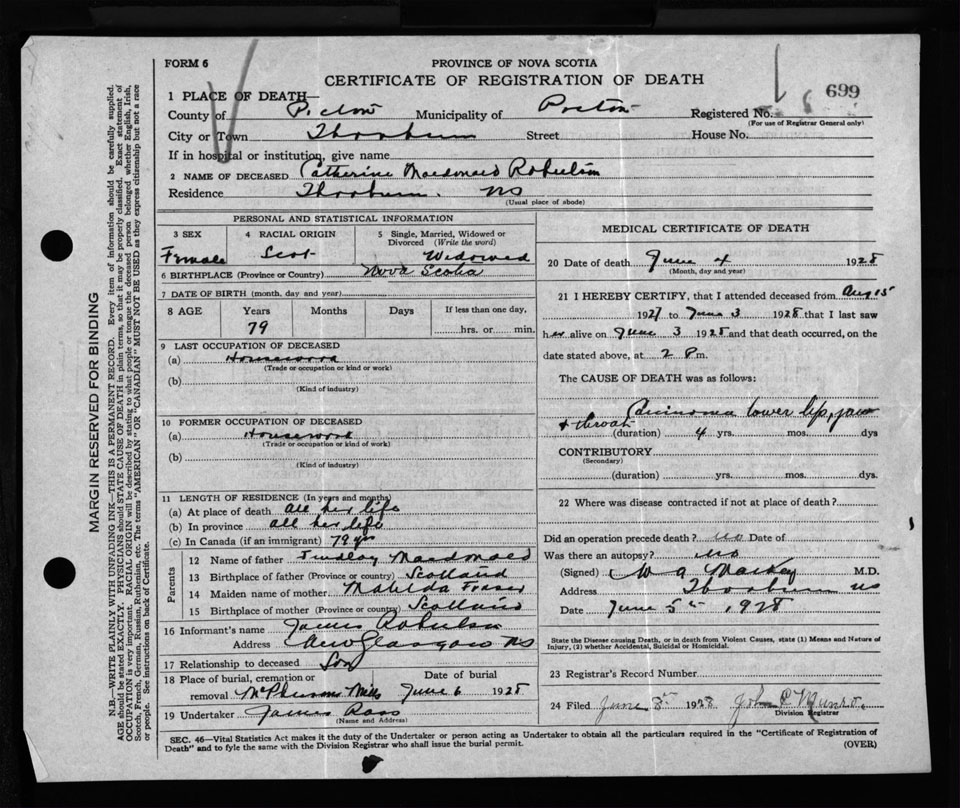 FORM 6
PROVINCE OF NOVA SCOTIA
CERTIFICATE OF REGISTRATION OF DEATH
699
1 PLACE OF DEATH—
County of Pictou Municipality of Registered No.
(For use of Registrar General only)
City or Town Thorburn Street House No.
If in hospital or institution, give name
2 NAME OF DECEASED Catherine Macdonald Robertson
Residence Thorburn. NS
(Usual place of abode)
PERSONAL AND STATISTICAL INFORMATION
3 SEX 4 RACIAL ORIGIN 5 Single, Married, Widowed or Divorced (Write the word)
Female Scot Widowed
6 BIRTHPLACE (Province or Country) Nova Scotia
7 DATE OF BIRTH (month, day and year)
8 AGE Years Months Days If less than one day,
79 hrs. or min.
9 LAST OCCUPATION OF DECEASED
(a) Housework
(Trade or occupation or kind or work)
(b)
(Kind of industry)
10 FORMER OCCUPATION OF DECEASED
(a) Housework
(Trade or occupation or kind of work)
(b)
(Kind of industry)
11 LENGTH OF RESIDENCE (In years and months)
(a) At place of death all her life
(b) In province all her life
(c) In Canada (if an immigrant) 79 yrs
Parents
12 Name of father Findlay Macdonald
13 Birthplace of father (Province or country) Scotland
14 Maiden name of mother Matilda Fraser
15 Birthplace of mother (Province or country) Scotland
16 Informant's name James Robertson
Address New Glasgow NS
17 Relationship to deceased Son
18 Place of burial, cremation or Date of burial
removal McPhersons Mills June 6 1928
19 Undertaker James Ross
(Name and Address)
MEDICAL CERTIFICATE OF DEATH
20 Date of death June 4 1928
(Month, day and year)
21 I HEREBY CERTIFY, that I attended deceased from Aug 15
1927 to June 3 1928 that I last saw
her alive on June 3 1928 and that death occurred, on the
date stated above, at 2 P m.
The CAUSE OF DEATH was as follows:
Carcinoma lower lip, jaw
+ throat
(duration) 4 yrs. mos. dys
CONTRIBUTORY
(Secondary)
(duration) yrs. mos. dys.
22 Where was disease contracted if not at place of death?
Did an operation precede death? no Date of
Was there an autopsy? no
(Signed) W A M.D.
Address Thorburn NS
Date June 5th 1928
State the Disease causing Death, or in death from Violent Causes, state (1) Means and Nature of
Injury, (2) whether Accidental, Suicidal or Homicidal.
23 Registrar's Record Number
24 Filed June 8th 1928 John Munro
Division Registrar
SEC. 46—Vital Statistics Act makes it the duty of the Undertaker or person acting as Undertaker to obtain all the particulars required in the "Certificate of Registration of
Death" and to fyle the same with the Division Registrar who shall issue the burial permit. (OVER)
MARGIN RESERVED FOR BINDING
N.B.—WRITE PLAINLY WITH UNFADING INK—THIS IS A PERMANENT RECORD. Every item of information should be carefully supplied.
AGE should be stated EXACTLY. PHYSICIANS should STATE CAUSE OF DEATH in plain terms, so that it may be properly classified. Exact statement of
OCCUPATION is very important. RACIAL ORIGIN will be described by stating to what people or tongue the deceased person belonged, whether English, Irish,
Scotch, French, German, Russian, Ruthenian, etc. The terms "AMERICAN" OR "CANADIAN" MUST NOT BE USED as they express citizenship but not a race
or people. See instructions on back of Certificate.